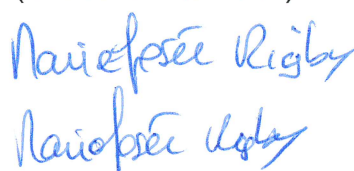 Mariejosée Rigby
Mariejosée Rigby